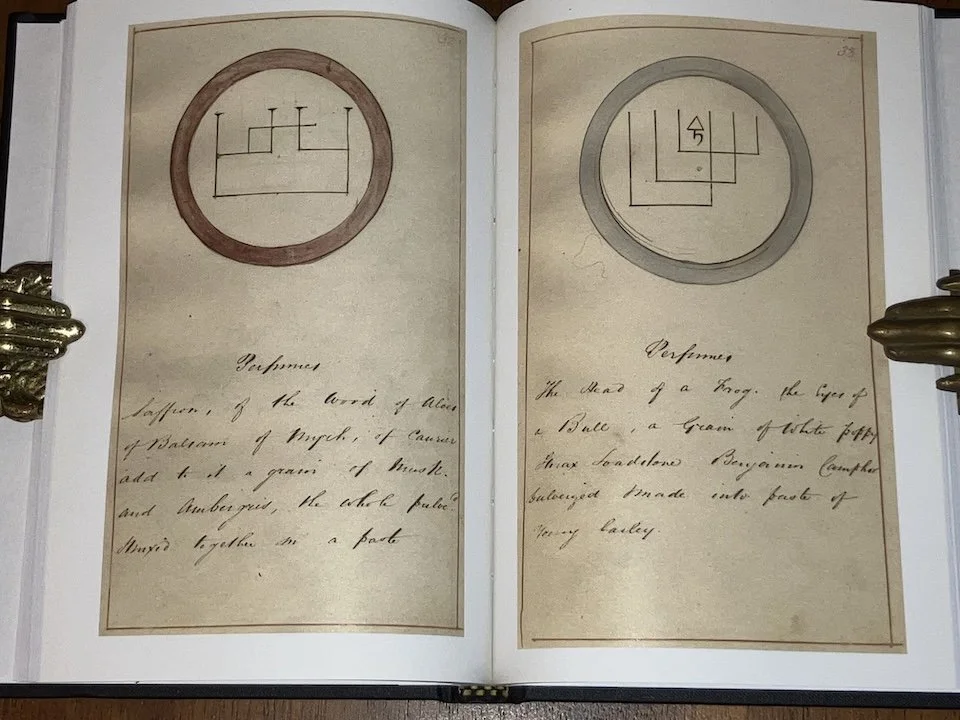 Perfumes
Saffron, of the Wood of Aloes
of Balsam of Myrh, of
add to it a grain of Musk.
and Ambergris, the whole pulve.d
& mixed together in a paste
38
Perfumes
The Head of a Frog. the Eyes of
a Bull, a Grain of White poppy
Loadstone Benjamin Camphor
pulverized made into paste of